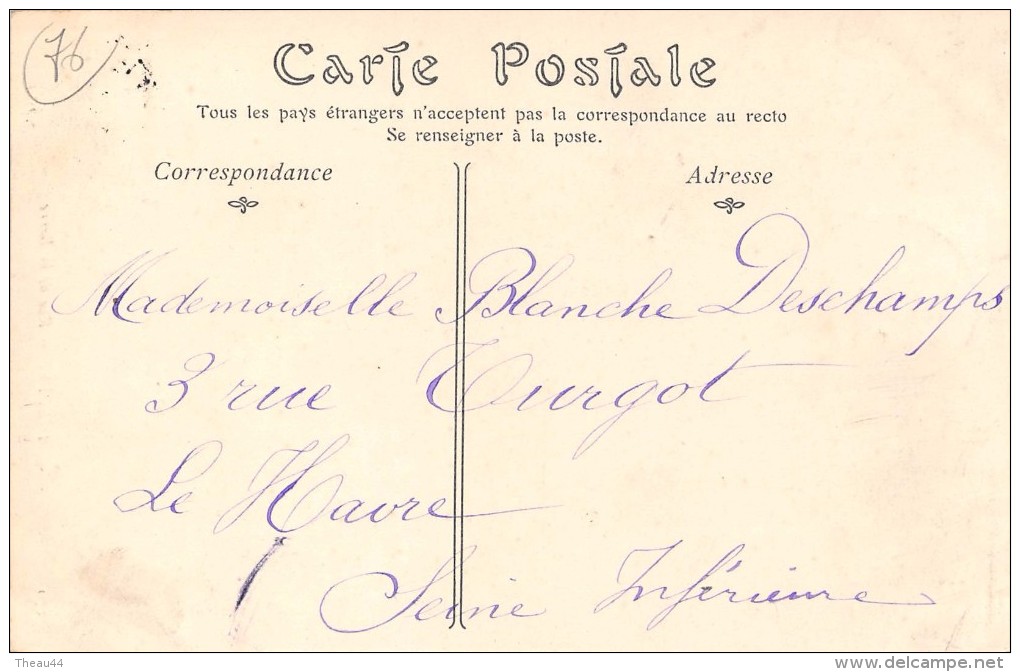 76
Carte Postale
Tous les pays étrangers n'acceptent pas la correspondance au recto
Se renseigner à la poste.
Correspondance Adresse
Mademoiselle Blanche Deschamps
3 rue Turgot
Le Havre
Seine Inférieure
Theau44
delcampe.net